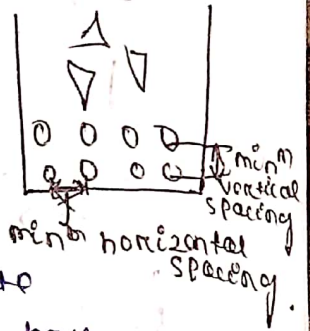 min^m
vertical
spacing
min^m horizontal
spacing.
to